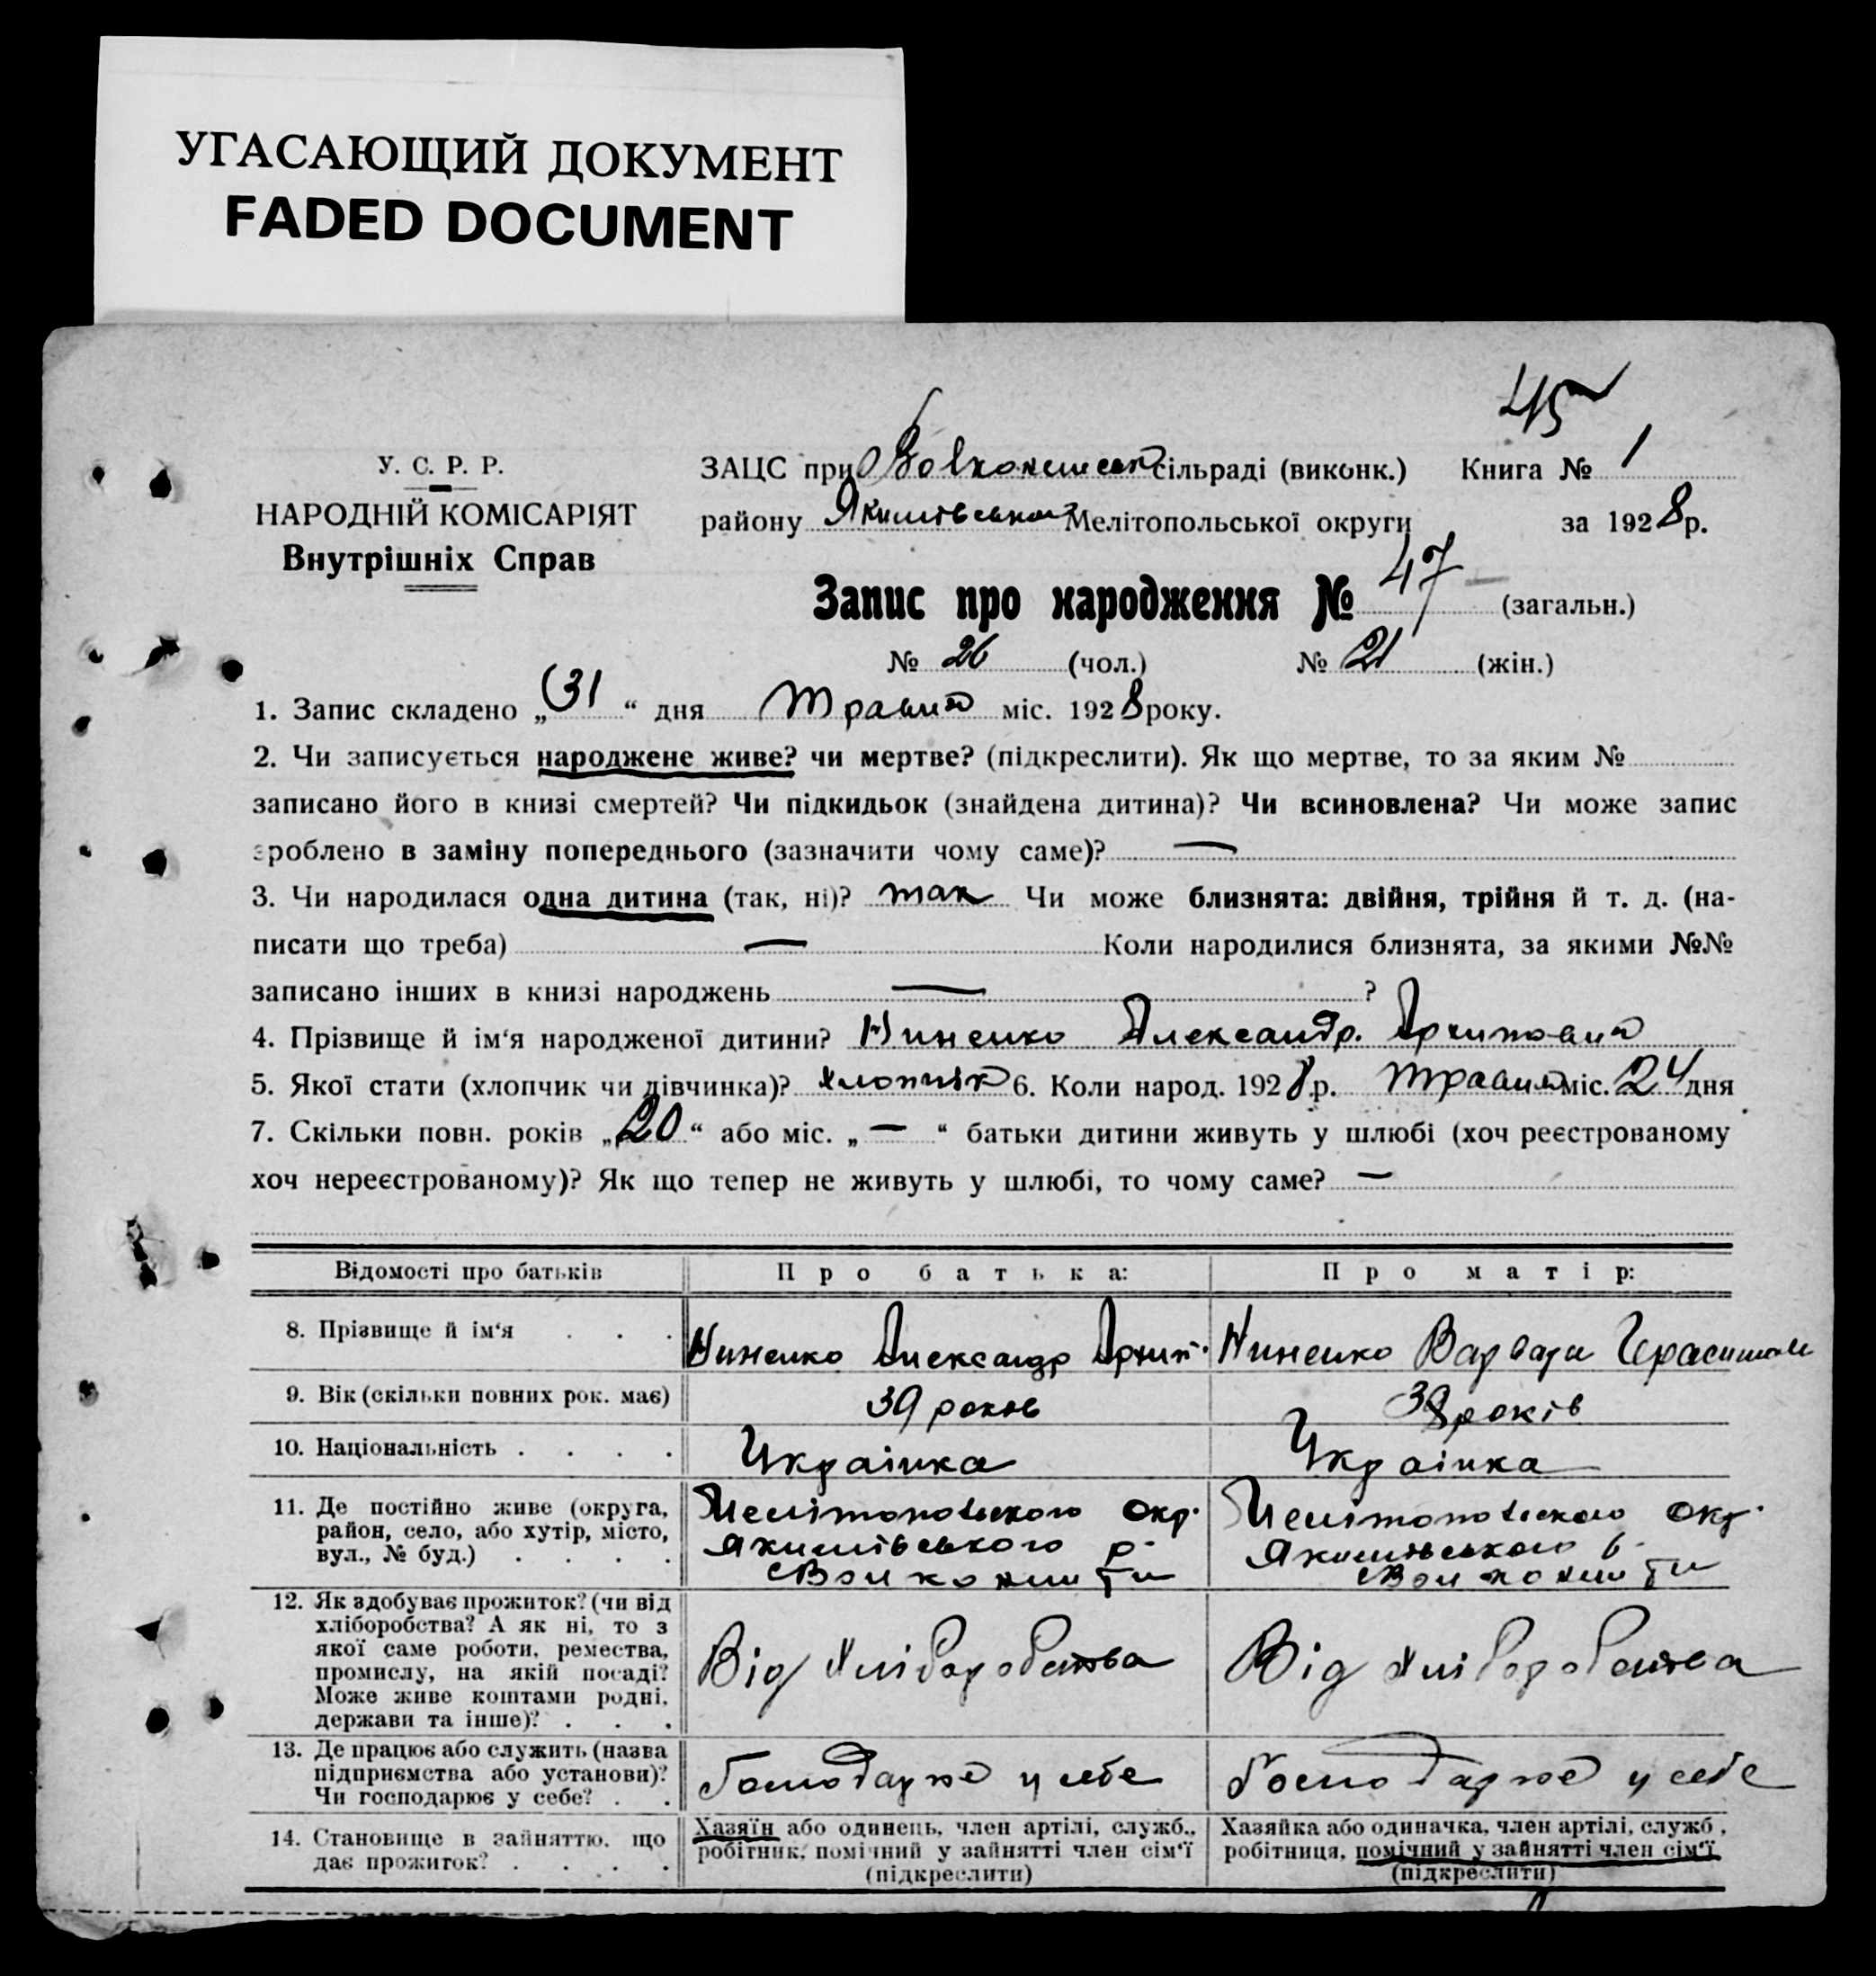 УГАСАЮЩИЙ ДОКУМЕНТ
FADED DOCUMENT
45
У. С. Р. Р.
НАРОДНІЙ КОМІСАРІЯТ
Внутрішніх Справ
ЗАЦС при сільраді (виконк.) Книга № 1
району Якимівського Мелітопольської округи за 1928 р.
Запис про народження № 47 (загальн.)
№ 26 (чол.) № 21 (жін.)
1. Запис складено „31“ дня Травня міс. 1928 року.
2. Чи записується народжене живе? чи мертве? (підкреслити). Як що мертве, то за яким №
записано його в книзі смертей? Чи підкидьок (знайдена дитина)? Чи всиновлена? Чи може запис
зроблено в заміну попереднього (зазначити чому саме)? —
3. Чи народилася одна дитина (так, ні)? так Чи може близнята: двійня, трійня й т. д. (на-
писати що треба) — Коли народилися близнята, за якими №№
записано інших в книзі народжень — ?
4. Прізвище й ім‘я народженої дитини? Александр.
5. Якої стати (хлопчик чи дівчинка)? хлопчік 6. Коли народ. 1928 р. Травня міс. 24 дня
7. Скільки повн. років „20“ або міс. „—“ батьки дитини живуть у шлюбі (хоч реєстрованому
хоч нереєстрованому)? Як що тепер не живуть у шлюбі, то чому саме? —
Відомості про батьків Про батька: Про матір:
8. Прізвище й ім‘я . . . Александр Варвара
9. Вік (скільки повних рок. має) 39 років 38 років
10. Національність . . . . Українка Українка
11. Де постійно живе (округа, Мелітопольського окр. Мелітопольського окр.
район, село, або хутір, місто, Якимівського р. Якимівського р.
вул., № буд.) . . . .
12. Як здобуває прожиток? (чи від
хліборобства? А як ні, то з
якої саме роботи, ремества, Від хліборобства Від хліборобства
промислу, на якій посаді?
Може живе коштами родні,
держави та інше)? . . .
13. Де працює або служить (назва
підприємства або установи)? Господарює у себе Господарює у себе
Чи господарює у себе? . .
14. Становище в зайняттю, що Хазяїн або одинець, член артілі, служб., Хазяйка або одиначка, член артілі, служб.,
дає прожиток? . . . . робітник, помічний у зайнятті член сім‘ї робітниця, помічний у зайнятті член сім‘ї
(підкреслити) (підкреслити)